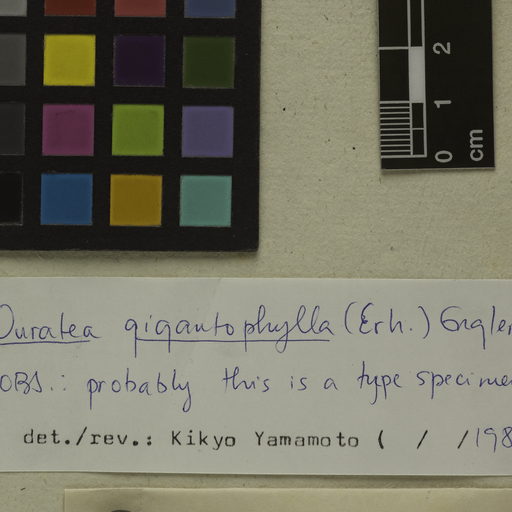 2
1
0
cm
Ouratea gigantophylla (Erh.) Engler
OBS.: probably this is a type specimen
det./rev.: Kikyo Yamamoto ( / /198